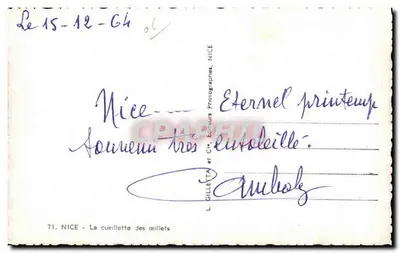 Le 15-12-64
Nice---- Eternel printemps
très ensoleillé.
71. NICE - La cueillette des œillets
L. GILLETTA et Cie, Éditeurs Photographes, NICE